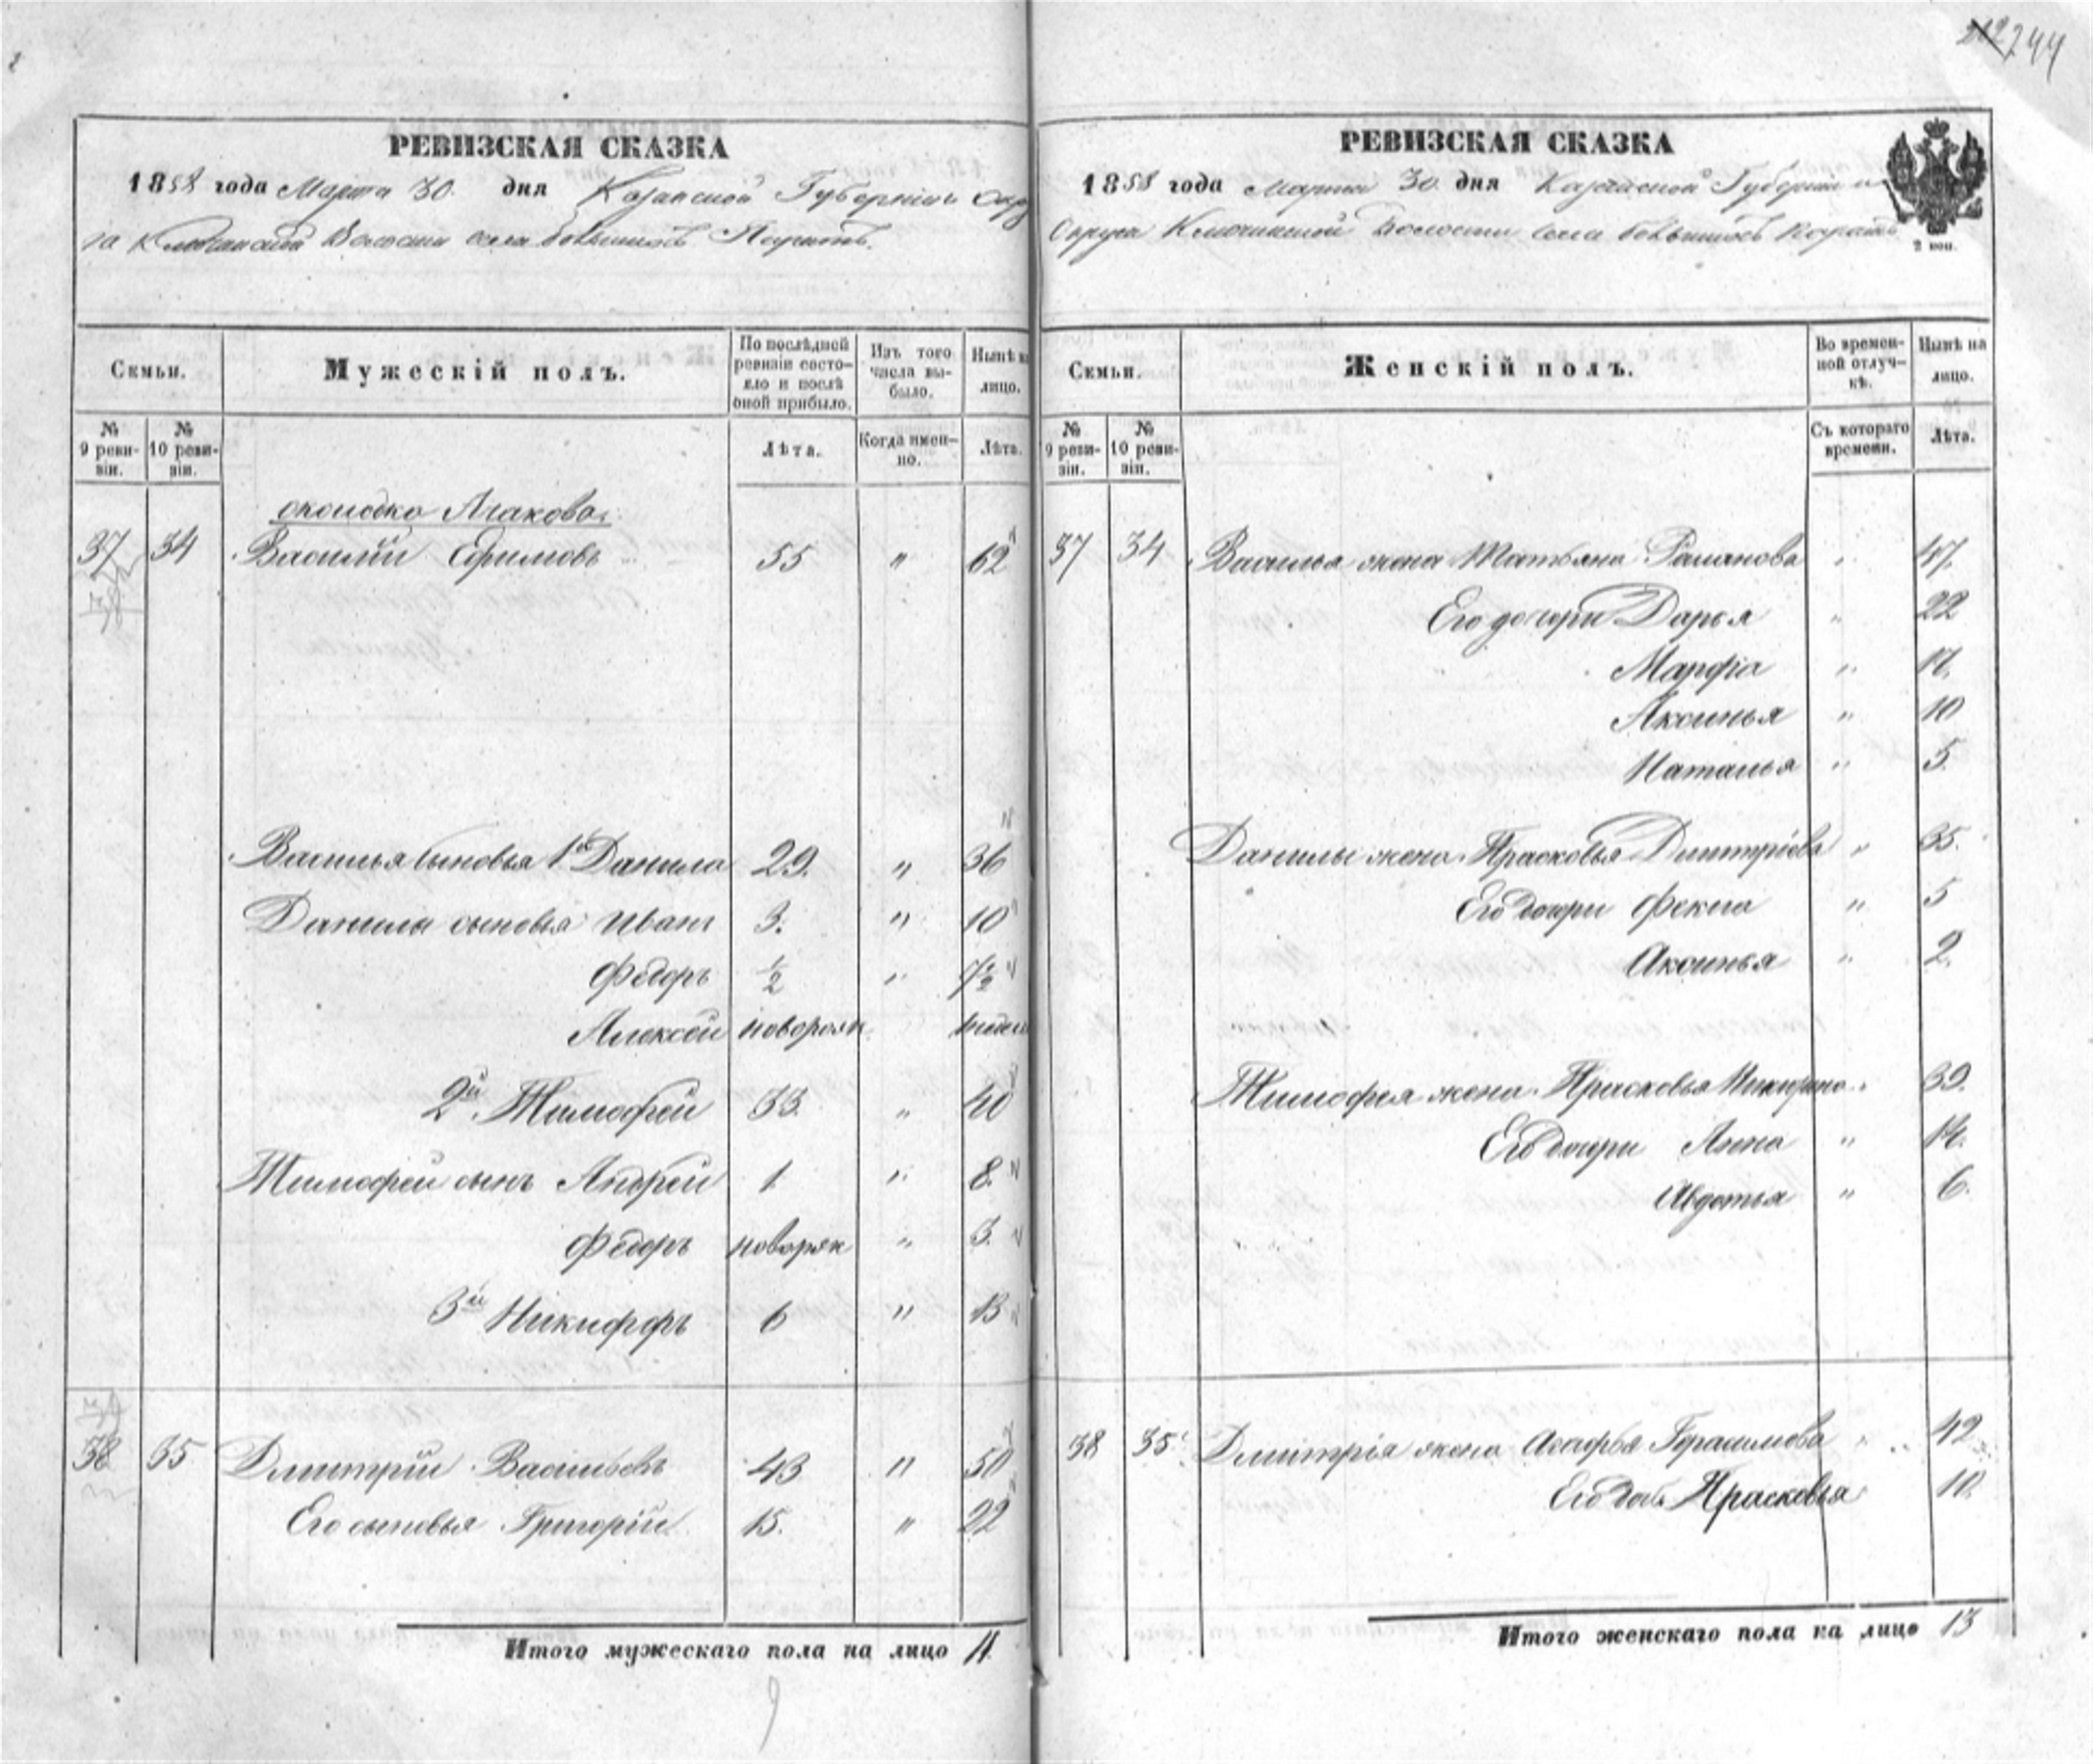 744
РЕВИЗСКАЯ СКАЗКА
1858 года Марта 30. дня Казанской Губернiи Окру
га Ключинской Волости села Большихъ
Семьи.
Мужескiй полъ.
По послѣдней ревизiи состояло и послѣ оной прибыло.
Изъ того числа выбыло.
Нынѣ на лицо.
№ 9 ревизiи.
№ 10 ревизiи.
Лѣта.
Когда именно.
Лѣта.
околодка
37 34 Василiй Ефимовъ 55 " 62
Василья сыновья 1й Данила 29. " 36
Данилы сыновья Иванъ 3. " 10
Федоръ 1/2 " 7 1/2
Алексей новорожд
2й Тимофей 33. " 40
Тимофей сынъ Андрей 1 " 8.
Федоръ новорж " 3.
3й Никифоръ 6 " 13
38 35 Дмитрiй Васильевъ 43 " 50
Его сыновья Григорiй 15. " 22
Итого мужескаго пола на лицо 11.
РЕВИЗСКАЯ СКАЗКА
1858 года Марта 30 дня Казанской Губернiи
Округа Ключинской Волости села Большихъ
2 коп.
Семьи.
Женскiй полъ.
Во временной отлучкѣ.
Нынѣ на лицо.
№ 9 ревизiи.
№ 10 ревизiи.
Съ котораго времени.
Лѣта.
37 34 Василья жена Татьяна Романова " 47.
Его дочери Дарья " 22
Марфiа " 17.
Аксинья " 10
Наталья " 5.
Данилы жена Прасковья Дмитрiева " 35.
Его дочери Фекла " 5
Аксинья " 2.
Тимофея жена Прасковья " 39.
Его дочери Анна " 14.
Авдотья " 6.
38 35 Дмитрiя жена Агафья Герасимова " 42
Его дочь Прасковья 10.
Итого женскаго пола на лицо 13